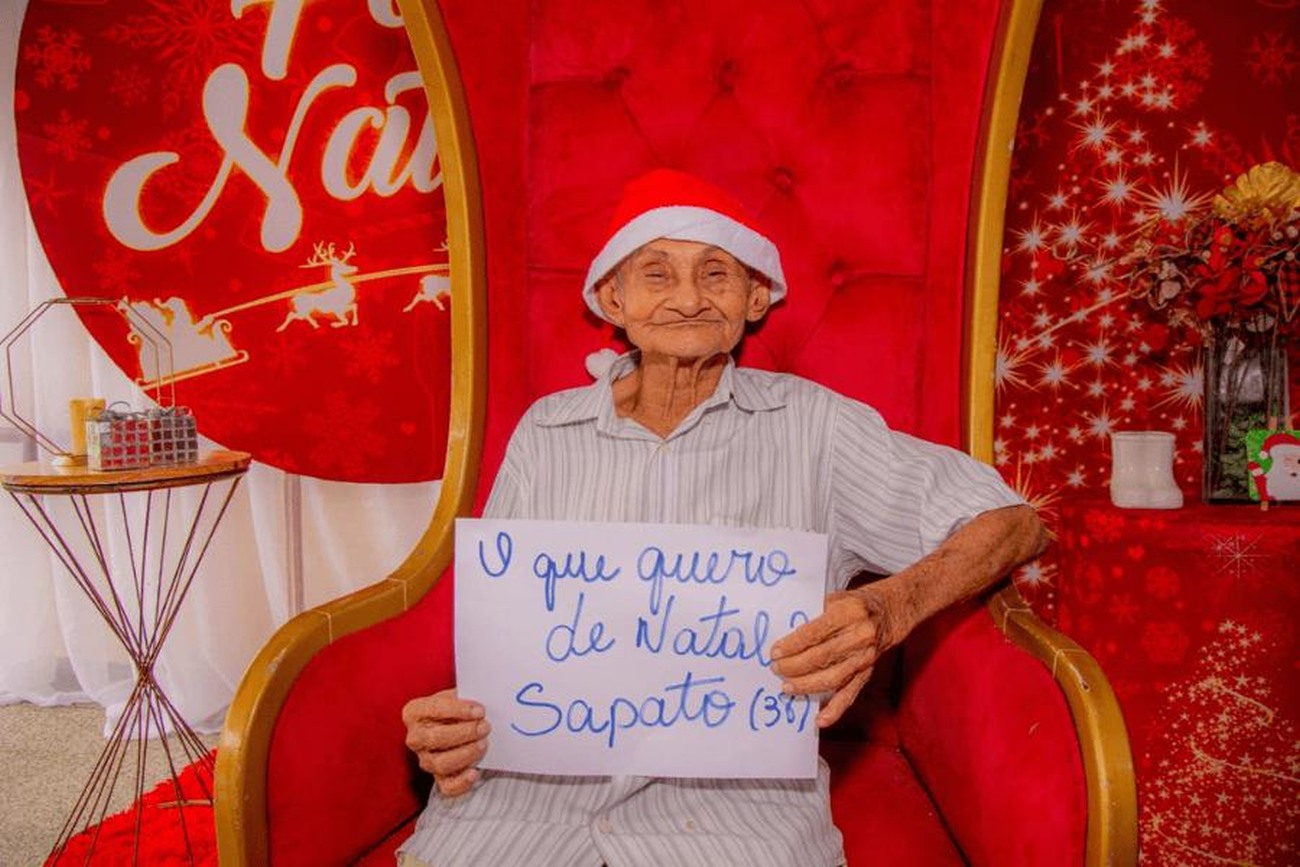 Natal
O que quero
de Natal?
Sapato (38)